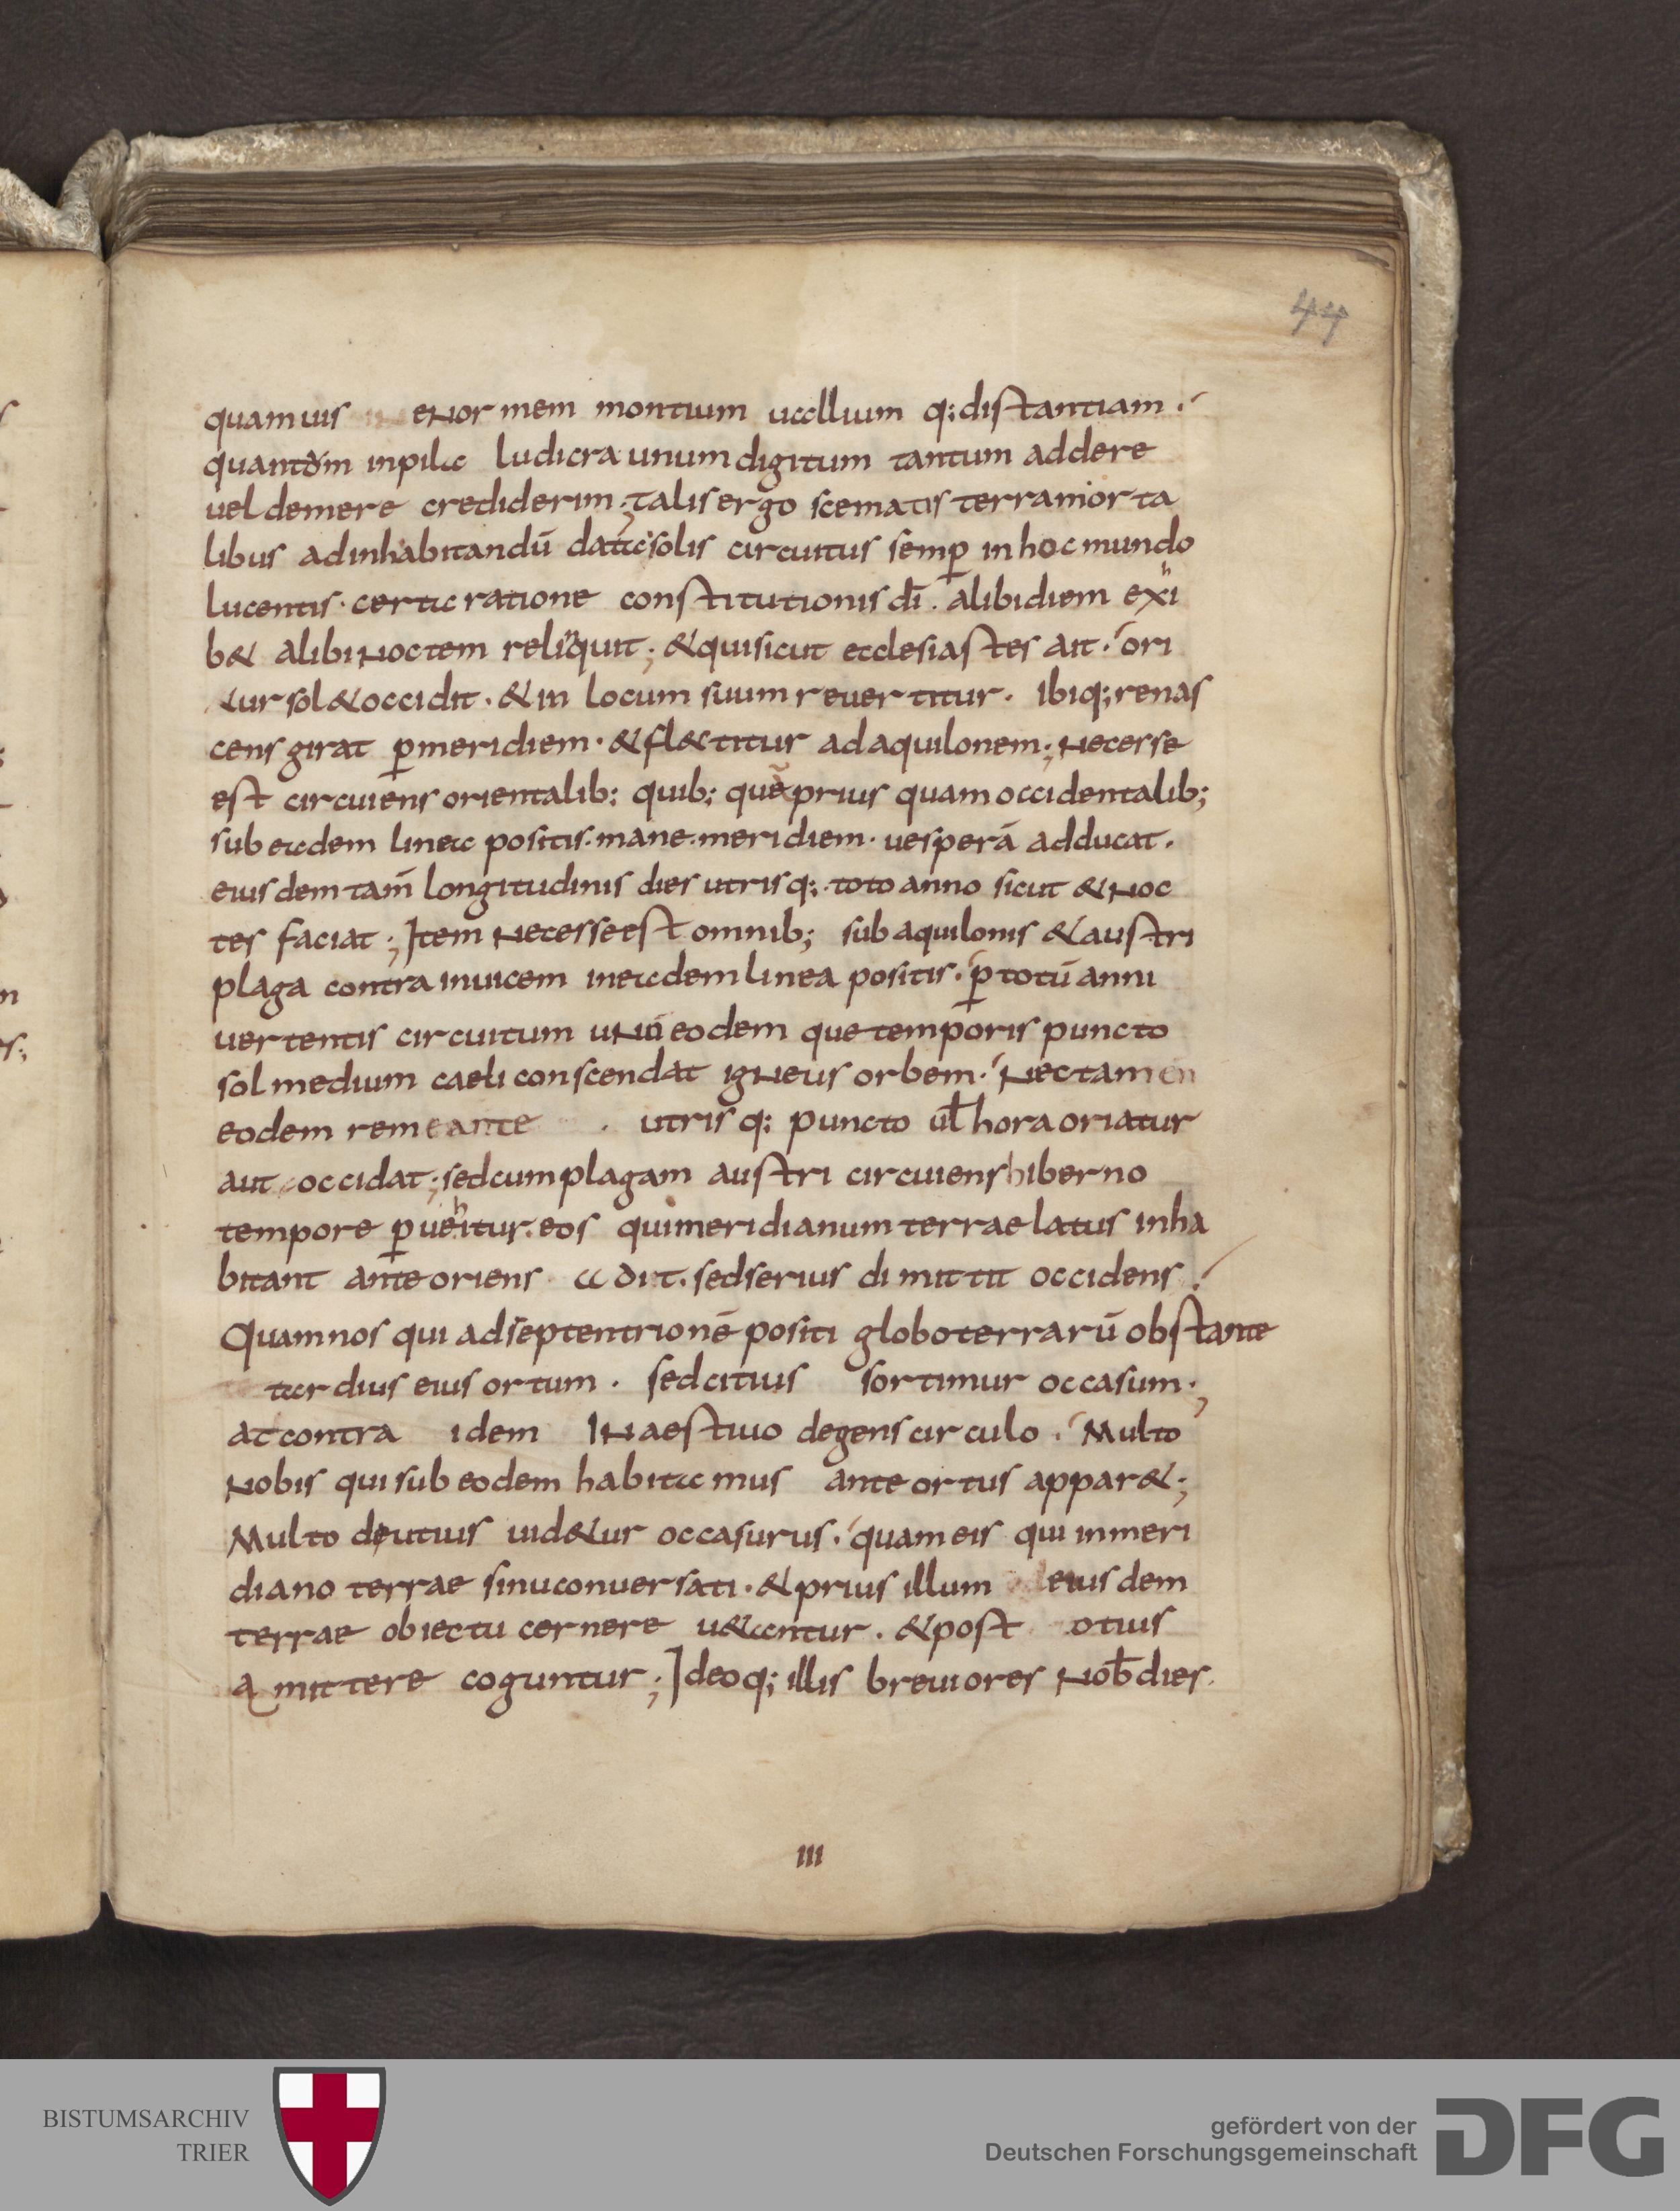 44
quamuis enormem montium uallium q; distantiam.
quantũm inpila ludicra unum digitum tantum addere
uel demere crediderim; talis ergo scematis terra morta
libus adinhabitandū data solis circuitus semꝑ in hoc mundo
lucentis. certa ratione constitutionis dī. alibi diem exhi
b& alibi noctem relinquit; & qui sicut ecclesiastes ait. ori
&ur sol & occidit. & in locum suum reuertitur. ibiq; renas
cens girat ꝑ meridiem. & fl&titur ad aquilonem; necesse
est circuiens orientalib; quib; quē prius quam occidentalib;
sub eadem linea positis. mane. meridiem. uesperā adducat.
eiusdem tam̄ longitudinis dies utrisq; toto anno sicut & noc
tes faciat; Item necesse est omnib; sub aquilonis & austri
plaga contra inuicem in eadem linea positis. ꝑ totū anni
uertentis circuitum unū eodem que temporis puncto
sol medium caeli conscendat igneus orbem. Nec tamen
eodem remeante utrisq; puncto ul̄ hora oriatur
aut occidat; sed cum plagam austri circuiens hiberno
tempore ꝑuehitur. eos qui meridianum terrae latus inha
bitant ante oriens adit. sed serius dimittit occidens.
Quam nos qui ad septentrionē positi globo terrarū obstante
tardius eius ortum. sed citius sortimur occasum;
at contra idem in aestiuo degens circulo. Multo
nobis qui sub eodem habitamus ante ortus appar&;
Multo diutius uid&ur occasurus. quam eis qui in meri
diano terrae sinu conuersati. & prius illum eiusdem
terrae obiectu cernere u&antur. & post otius
amittere coguntur; Ideoq; illis breuiores nob̄ dies.
III
BISTUMSARCHIV
TRIER
gefördert von der
Deutschen Forschungsgemeinschaft
DFG